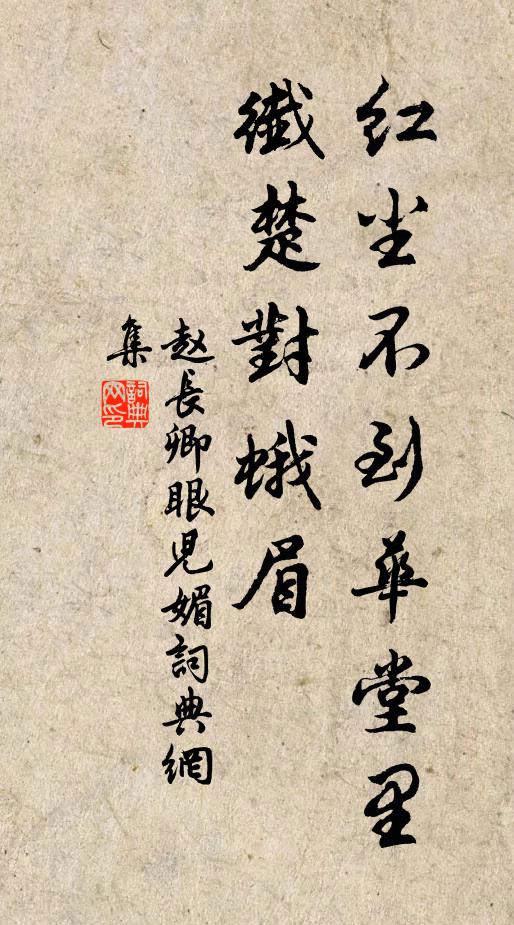 红尘不到華堂里
纎楚對蛾眉
赵長卿眼児媚詞典網
集
詞典
网印